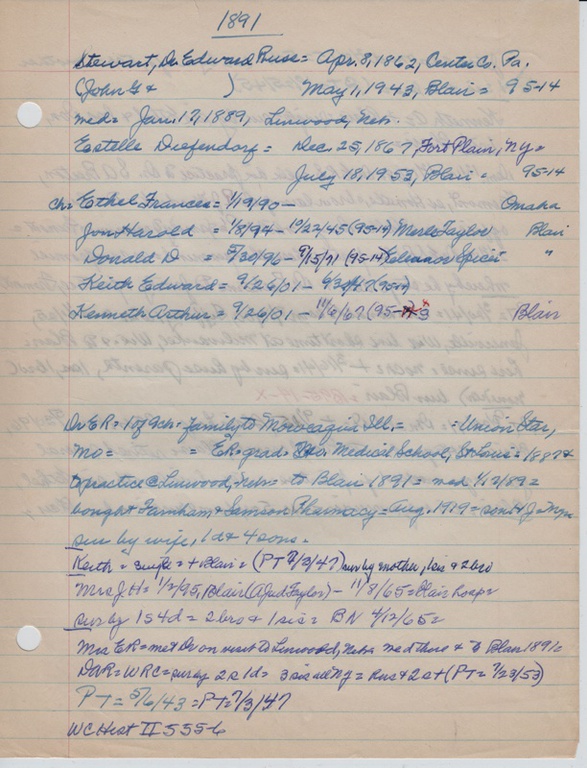 1891
Stewart, Dr. Edward Ruse = Apr. 8, 1862, Center Co. Pa.
(John G & ) May 1, 1943, Blair = 95-14
med = Jan. 17, 1889, Linwood, Neb.
Estelle Diefendorf = Dec. 25, 1867, Fort Plain, NY =
July 18, 1953, Blair = 95-14
ch = Ethel Frances = 1/19/90 - Omaha
Jon Harold = 1/8/94 - 10/22/45 (95-14) Merle Taylor Blair
Donald D = 5/30/96 - 9/15/71 (95-14) Spicer "
Keith Edward = 9/26/01 - 6/30/47 (95-14)
Kenneth Arthur = 9/26/01 - 11/6/67 (95- Blair
Dr ER = 1 of 9 ch = family to Ill. = = Union Star,
Mo = = ER grad = Mo. Medical School, St Louis = 1887 &
practice @ Linwood, Neb = to Blair 1891 = med 1/17/89 =
bought Farnham & Samson Pharmacy = Aug. 1919 = son H J =
sur by wife, 1 d & 4 sons =
Keith = + Blair = (PT 7/3/47) sur by mother, 1 sis & 2 bro
Mrs J H = 1/2/95, Blair (A Taylor) - 11/8/65 = Blair hosp =
sur by 1 s 4 d = 2 bro & 1 sis = BN 4/12/65 =
Mrs ER = met Dr on visit to Linwood, Neb & med there & to Blair 1891 =
DAR = WRC = sur by 2 s 1 d = 3 sis all NY = & 2 s + (PT = 7/23/53)
PT = 5/6/43 = PT = 7/3/47
WC Hist II 555-6